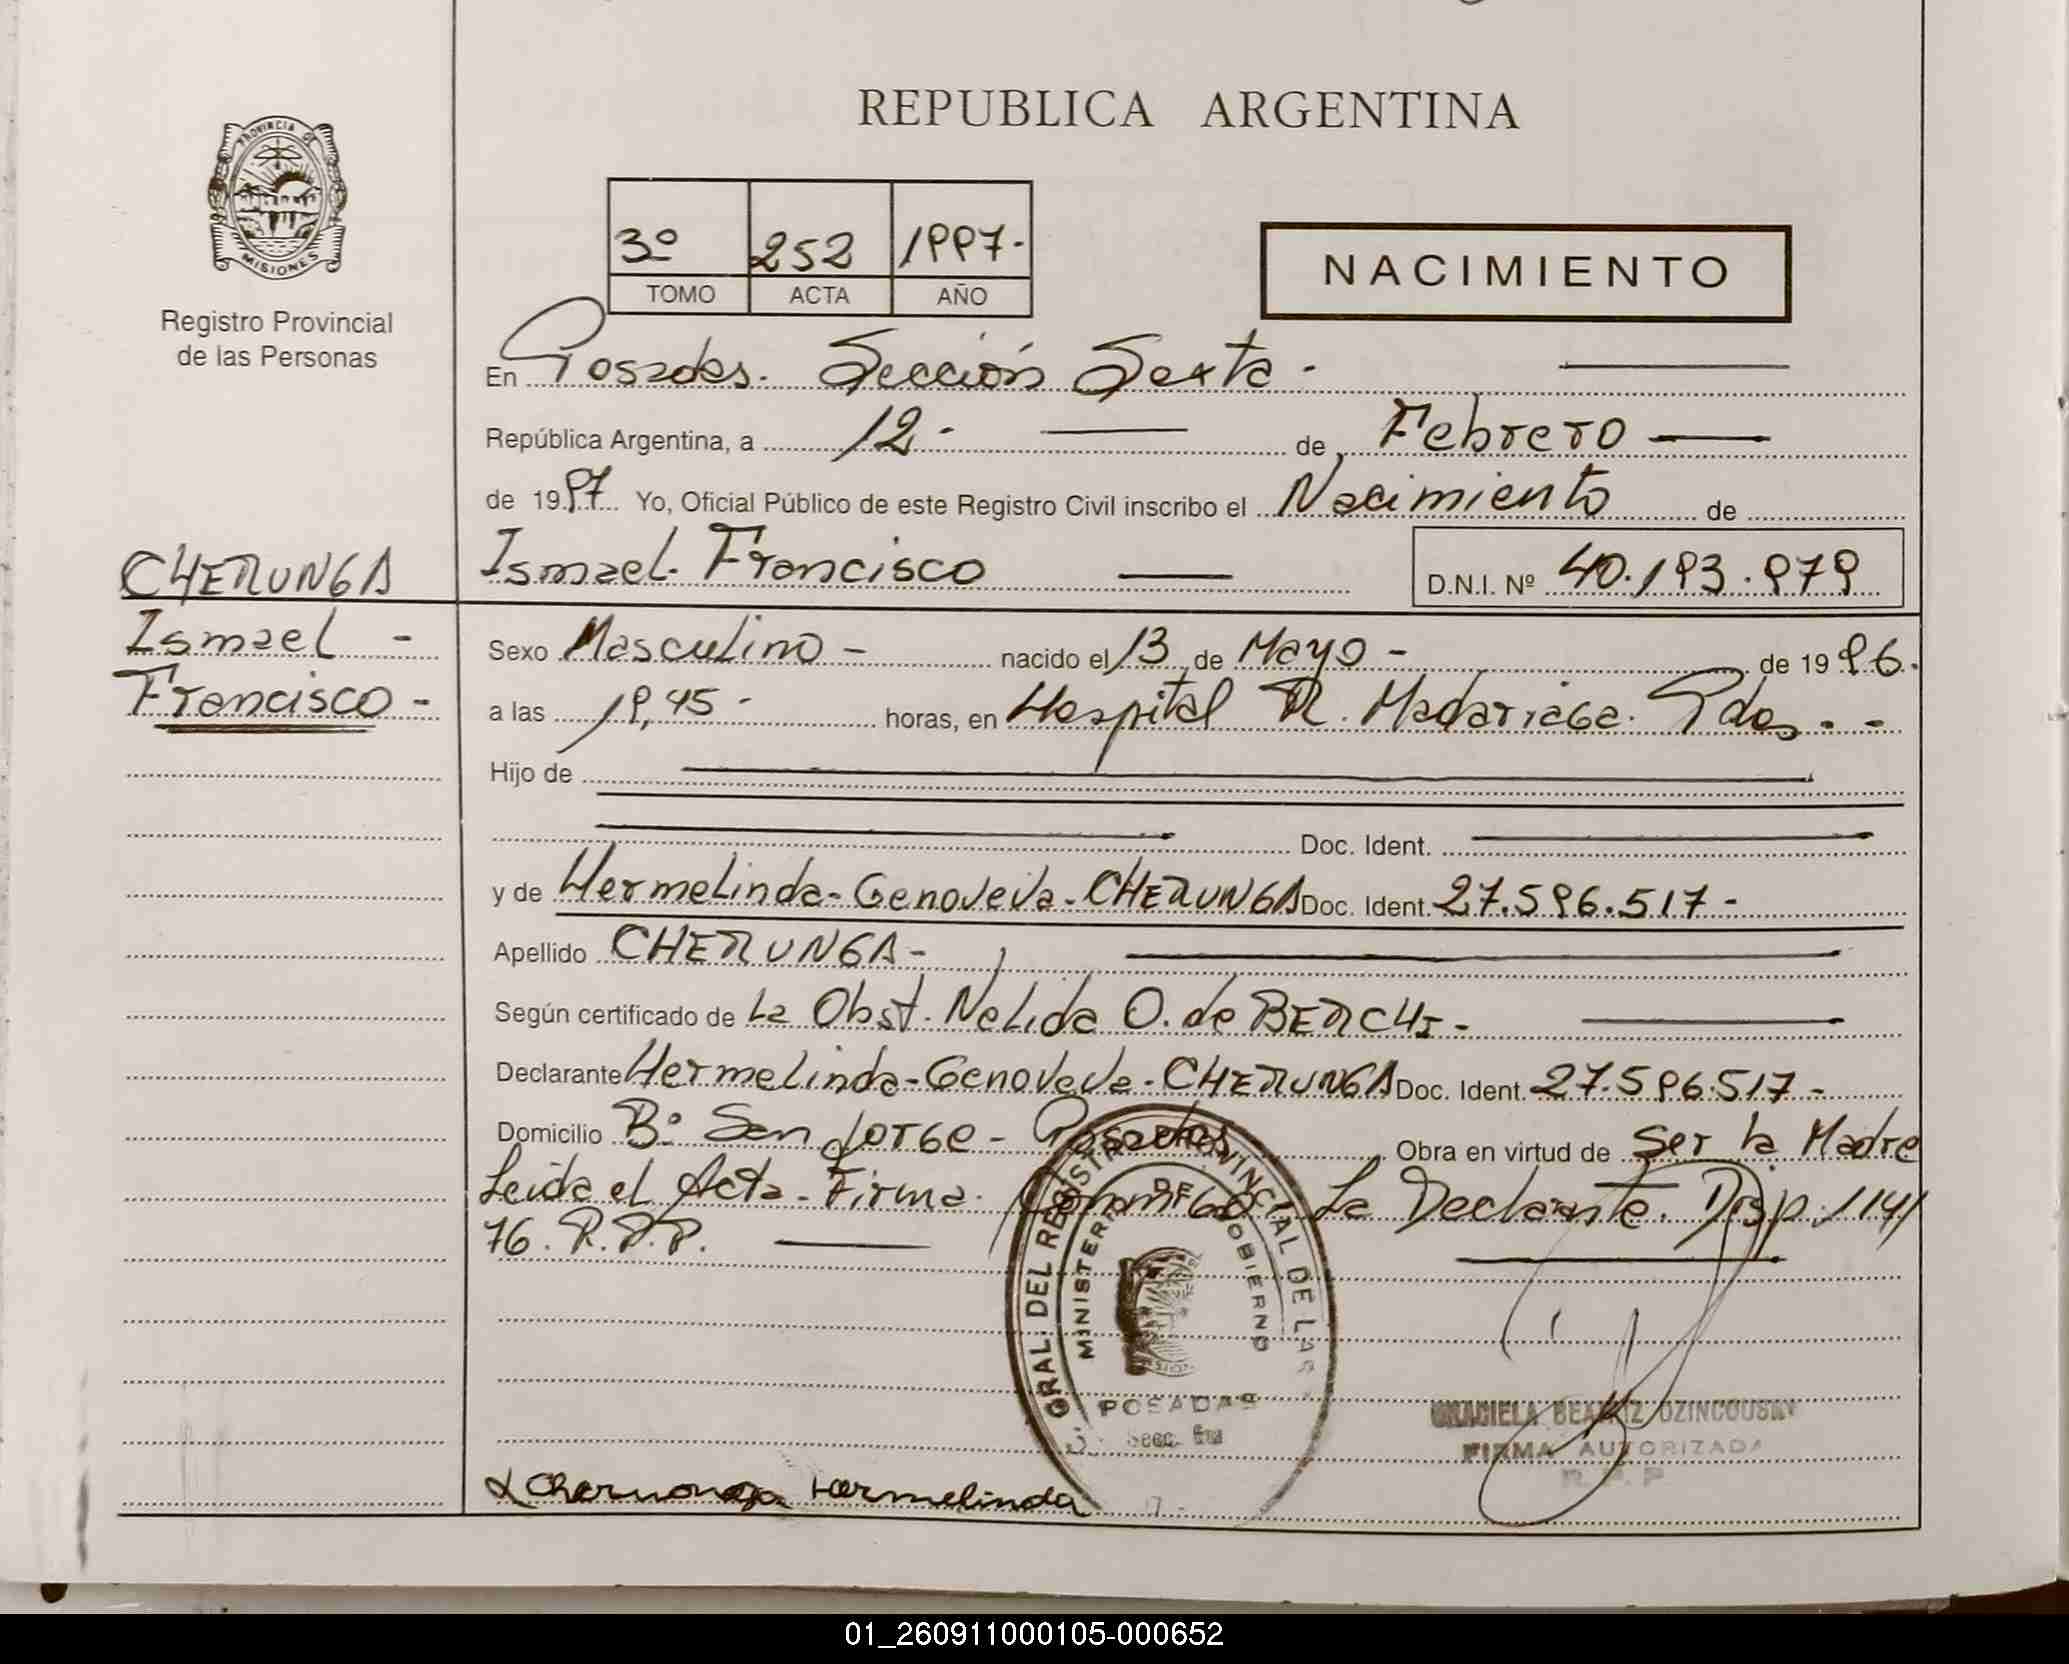 REPUBLICA ARGENTINA
PROVINCIA DE
MISIONES
Registro Provincial
de las Personas
3º 252 1997.
TOMO ACTA AÑO
NACIMIENTO
En Posadas. Sección Sexta -
República Argentina, a 12 - de Febrero
de 1997 Yo, Oficial Público de este Registro Civil inscribo el Nacimiento de
CHERUNGA
Ismael -
Francisco -
Ismael. Francisco D.N.I. Nº 40.193.979
Sexo Masculino - nacido el 13 de Mayo - de 1996.
a las 19,45 - horas, en Hospital R. Madariaga. Pdas. -
Hijo de
Doc. Ident.
y de Hermelinda - Genoveva - CHERUNGA Doc. Ident. 27.596.517 -
Apellido CHERUNGA -
Según certificado de La Obst. Nelida O. de BERCHI -
Declarante Hermelinda - Genoveva - CHERUNGA Doc. Ident. 27.596.517 -
Domicilio Bº San Jorge - Posadas Obra en virtud de Ser la Madre
Leida el Acta - Firma. Conmigo La Declarante. Disp. 1141
76. R.P.P.
GRAL. DEL REGISTRO PROVINCIAL DE LAS
MINISTERIO DE GOBIERNO
POSADAS
Secc. 6ta
GRACIELA BEATRIZ OZINCOUSKY
FIRMA AUTORIZADA
R. P. P
Cherunga Hermelinda
01_260911000105-000652